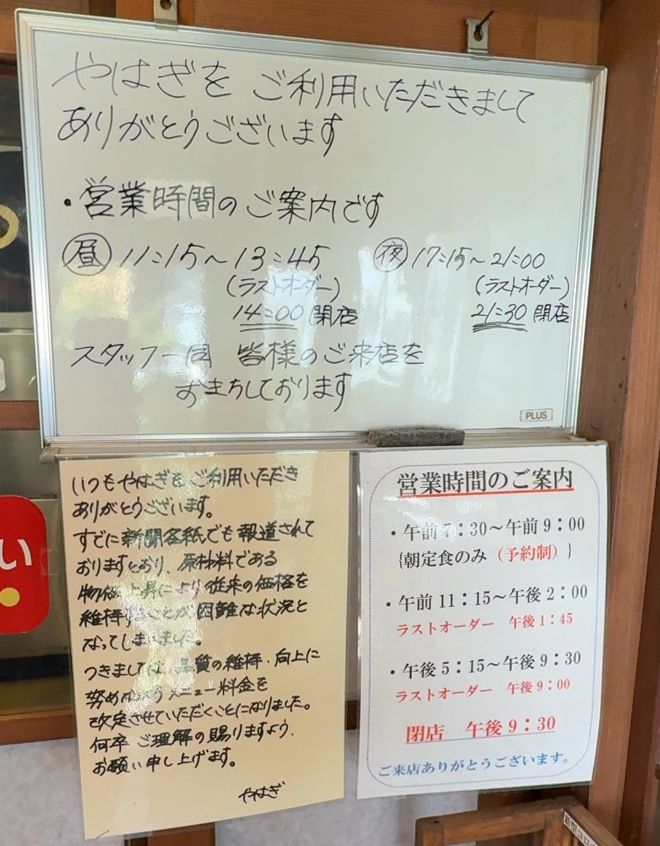 やはぎを ご利用いただきまして
ありがとうございます
・営業時間のご案内です
昼 11:15～13:45
(ラストオーダー)
14:00 閉店
夜 17:15～21:00
(ラストオーダー)
21:30 閉店
スタッフ一同 皆様のご来店を
おまちしております
PLUS
いつもやはぎをご利用いただき
ありがとうございます。
すでに新聞各紙でも報道されて
おりますとおり、原材料である
物価上昇により従来の価格を
維持することが困難な状況と
なってしまいました。
つきましては、品質の維持・向上に
努めながらメニュー料金を
改定させていただくことになりました。
何卒ご理解の賜りますよう、
お願い申し上げます。
やはぎ
営業時間のご案内
・午前7：30～午前9：00
{朝定食のみ（予約制）}
・午前11：15～午後2：00
ラストオーダー 午後1：45
・午後5：15～午後9：30
ラストオーダー 午後9：00
閉店 午後9：30
ご来店ありがとうございます。
い